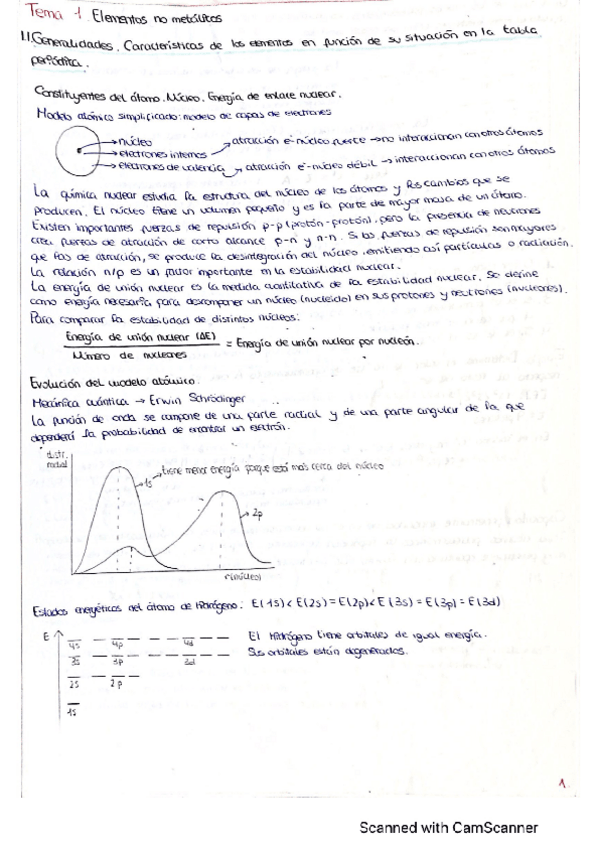 Tema 1. Elementos no metálicos
1.1. Generalidades. Características de los elementos en función de su situación en la tabla
periódica.
Constituyentes del átomo. Núcleo. Energía de enlace nuclear.
Modelo atómico simplificado: modelo de capas de electrones
núcleo
electrones internos → atracción e⁻-núcleo fuerte → no interaccionan con otros átomos
electrones de valencia → atracción e⁻-núcleo débil → interaccionan con otros átomos
La química nuclear estudia la estructura del núcleo de los átomos y los cambios que se
producen. El núcleo tiene un volumen pequeño y es la parte de mayor masa de un átomo.
Existen importantes fuerzas de repulsión p-p (protón-protón), pero la presencia de neutrones
crea fuerzas de atracción de corto alcance p-n y n-n. Si las fuerzas de repulsión son mayores
que las de atracción, se produce la desintegración del núcleo, emitiendo así partículas o radiación.
La relación n/p es un factor importante en la estabilidad nuclear.
La energía de unión nuclear es la medida cuantitativa de la estabilidad nuclear. Se define
como energía necesaria para descomponer un núcleo (nucleido) en sus protones y neutrones (nucleones).
Para comparar la estabilidad de distintos núcleos:
Energía de unión nuclear (ΔE)
Número de nucleones
= Energía de unión nuclear por nucleón.
Evolución del modelo atómico.
Mecánica cuántica → Erwin Schrödinger
La función de onda se compone de una parte radial y de una parte angular de la que
dependerá la probabilidad de encontrar un electrón.
distr.
radial
1s
tiene menor energía porque está más cerca del núcleo
2p
r(núcleo)
Estados energéticos del átomo de Hidrógeno: E(1s) < E(2s) = E(2p) < E(3s) = E(3p) = E(3d)
E
4s 4p 4d
3s 3p 3d
2s 2p
1s
El Hidrógeno tiene orbitales de igual energía.
Sus orbitales están degenerados.
1.
Scanned with CamScanner